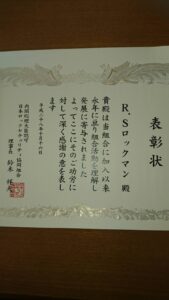 表彰状
R.Sロックマン 殿
貴殿は当組合に加入以来
永年に亘り組合活動を理解し
発展に寄与されました
よってここにそのご功労に
対して深く感謝の意を表し
ます
平成二十八年 月十六日
日本ロックセキュリティ協同組合
理事長 鈴木